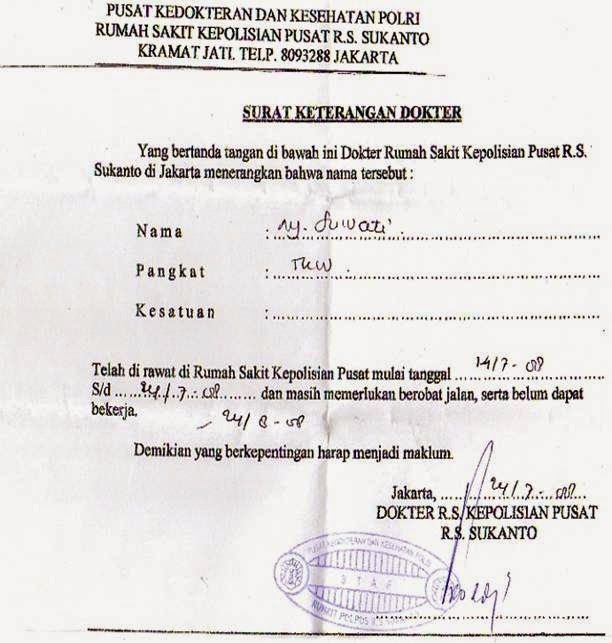 PUSAT KEDOKTERAN DAN KESEHATAN POLRI
RUMAH SAKIT KEPOLISIAN PUSAT R.S. SUKANTO
KRAMAT JATI. TELP. 8093288 JAKARTA
SURAT KETERANGAN DOKTER
Yang bertanda tangan di bawah ini Dokter Rumah Sakit Kepolisian Pusat R.S.
Sukanto di Jakarta menerangkan bahwa nama tersebut :
Nama : Ny. Suwati
Pangkat : TKW
Kesatuan :
Telah di rawat di Rumah Sakit Kepolisian Pusat mulai tanggal 14/7-08
S/d 24/7-08 dan masih memerlukan berobat jalan, serta belum dapat
bekerja. 24/8-08
Demikian yang berkepentingan harap menjadi maklum.
Jakarta, 24/7-08
DOKTER R.S. KEPOLISIAN PUSAT
R.S. SUKANTO
PUSAT KEDOKTERAN DAN KESEHATAN POLRI
STAF